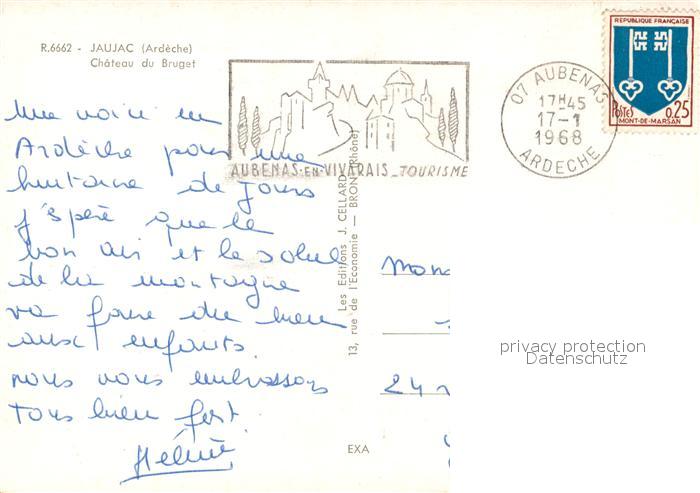 R.6662 - JAUJAC (Ardèche)
Château du Bruget
Me voici en
Ardèche pour une
huitaine de jours
j'espère que le
bon air et le soleil
de la montagne
va faire du bien
aux enfants.
nous vous embrassons
tous bien fort.
Hélène
AUBENAS-EN-VIVARAIS_TOURISME
Les Editions J. CELLARD
13, rue de l'Economie — BRON (Rhône)
EXA
07 AUBENAS
17H45
17-1
1968
ARDECHE
REPUBLIQUE FRANÇAISE
POSTES 0,25
MONT-DE-MARSAN
24
privacy protection
Datenschutz